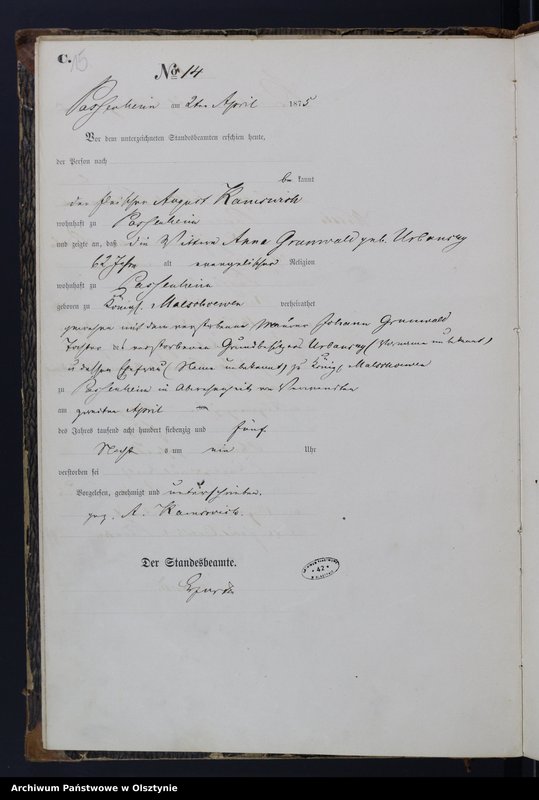 C. 15.
No 14
Passenheim am 2ten April 1875
Vor dem unterzeichneten Standesbeamten erschien heute,
der Person nach
be kannt
der August Kamswich
wohnhaft zu Passenheim
und zeigte an, daß die Wittwe Anna Grunwald geb. Urbansky
62 Jahre alt evangelischer Religion
wohnhaft zu Passenheim
geboren zu Königl. Malschoewen verheirathet
gewesen mit dem verstorbenen Maurer Johann Grunwald
Tochter des verstorbenen Grundbesitzers Urbansky (Vorname unbekannt)
u dessen Ehefrau (Name unbekannt) zu Königl. Malschoewen
zu Passenheim in Abwesenheit von Verwandten
am zweiten April
des Jahres tausend acht hundert siebenzig und fünf
Nachts um ein Uhr
verstorben sei
Vorgelesen, genehmigt und unterschrieben.
gez. A. Kamswich.
Der Standesbeamte.
42
Archiwum Państwowe w Olsztynie